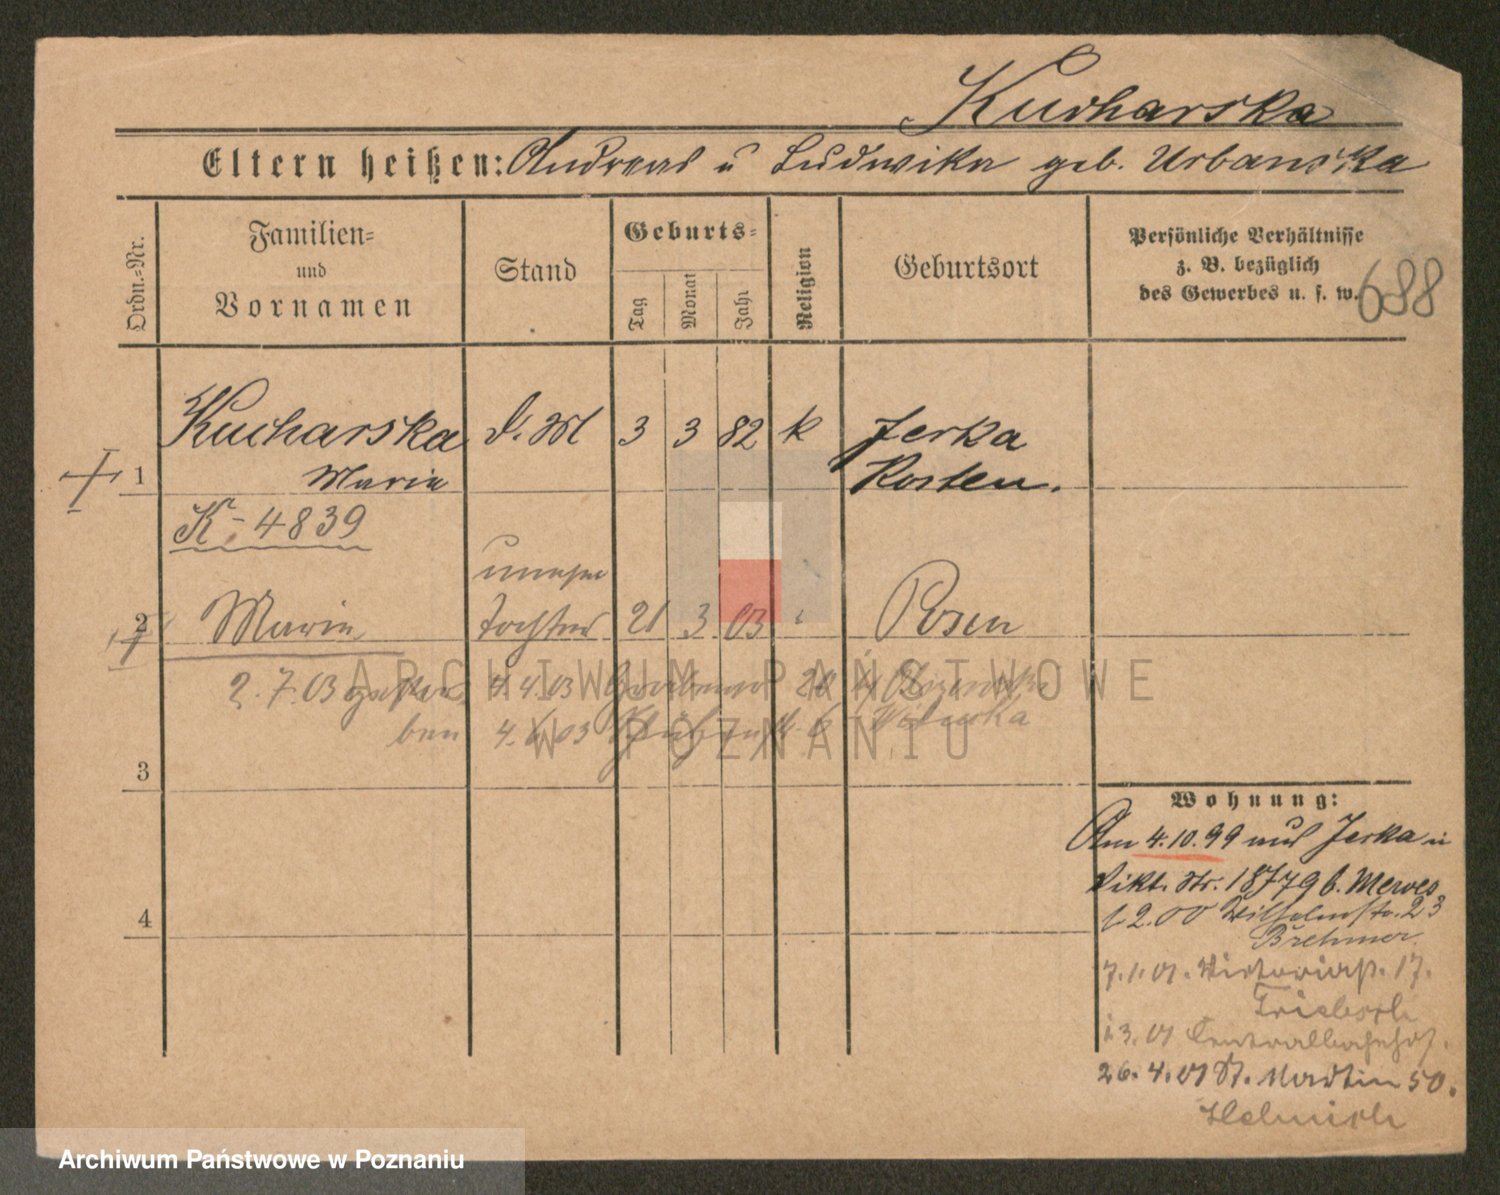 Kucharska
Eltern heißen: Andreas u Ludwika geb. Urbanska
Ordn.-Nr.
Familien-
und
Vornamen
Stand
Geburts-
Tag
Monat
Jahr
Religion
Geburtsort
Persönliche Verhältnisse
z. B. bezüglich
des Gewerbes u. s. w.
688
Kucharska d. M 3 3 82 k Jerka
1 Marie Kosten.
K-4839
2 Marie Tochter 21 3 03 Posen
2.7.03 4.4.03
ben 4.6.03
3
4
Wohnung:
Am 4.10.99 aus Jerka in
Vikt. Str. 18 b. Merves
1.2.00 Wilhelmstr. 23
Brehmer
7.1.01. Victoriast. 17.
1.3.01 Centralbahnhof.
26.4.01 St. Martin 50.
ARCHIWUM PAŃSTWOWE
W POZNANIU
Archiwum Państwowe w Poznaniu